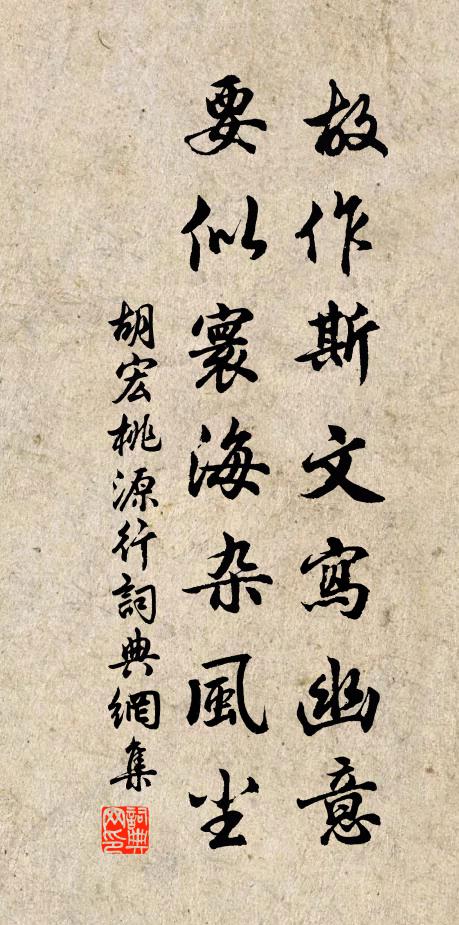 故作斯文寫幽意
要似寰海杂風尘
胡宏桃源行詞典網集
詞典网印